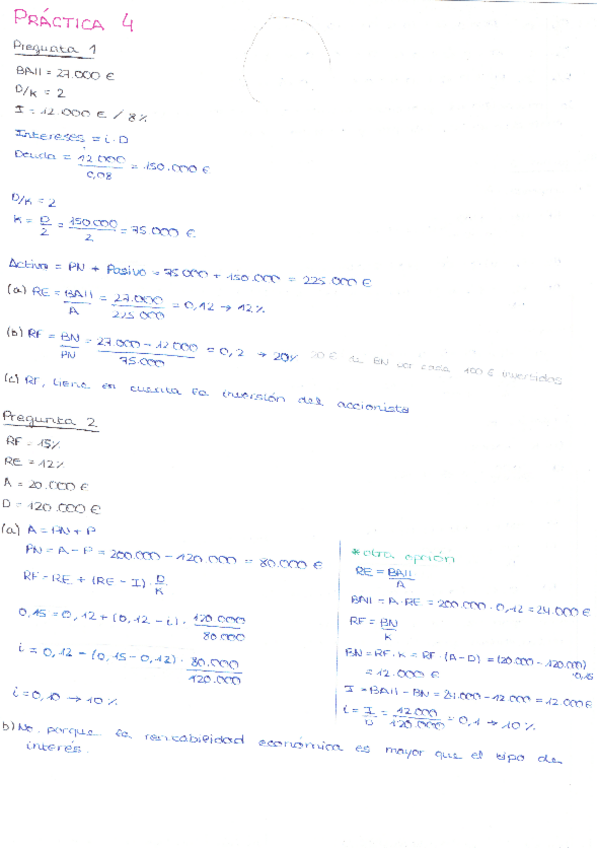 PRÁCTICA 4
Pregunta 1
BAII = 27.000 €
D/K = 2
I = 12.000 € / 8%
Intereses = i · D
Deuda = 12.000 / 0,08 = 150.000 €
D/K = 2
K = D/2 = 150.000/2 = 75.000 €
Activo = PN + Pasivo = 75.000 + 150.000 = 225.000 €
(a) RE = BAII/A = 27.000/225.000 = 0,12 → 12%
(b) RF = BN/PN = 27.000 - 12.000 / 75.000 = 0,2 → 20% 20 € de BN por cada 100 € invertidos
(c) RF, tiene en cuenta la inversión del accionista
Pregunta 2
RF = 15%
RE = 12%
A = 20.000 €
D = 120.000 €
(a) A = PN + P
PN = A - P = 200.000 - 120.000 = 80.000 €
RF = RE + (RE - I) · D/K
0,15 = 0,12 + (0,12 - i) · 120.000/80.000
i = 0,12 - (0,15 - 0,12) · 80.000/120.000
i = 0,10 → 10%
* otra opción
RE = BAII/A
BAII = A · RE = 200.000 · 0,12 = 24.000 €
RF = BN/K
BN = RF · K = RF · (A - D) = (20.000 - 120.000) · 0,15
= 12.000 €
I = BAII - BN = 24.000 - 12.000 = 12.000 €
i = I/D = 12.000/120.000 = 0,1 → 10%
b) No, porque la rentabilidad económica es mayor que el tipo de
interés.